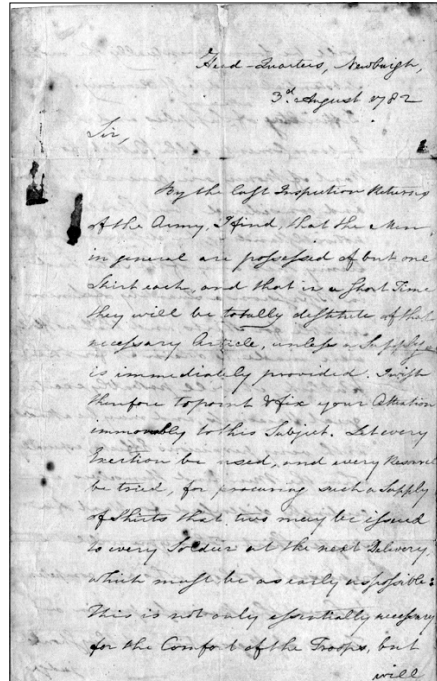 Head-Quarters, Newburgh,
3d August 1782
Sir,
By the last Inspection Returns
of the Army, I find, that the Men,
in general are possessed of but one
Shirt each, and that in a Short Time
they will be totally destitute of that
necessary Article, unless a Supply
is immediately provided. I wish
therefore to point & fix your Attention
immovably to this Subject. Let every
Exertion be used, and every
be tried, for procuring such a Supply
of Shirts that two may be issued
to every Soldier at the next Delivery,
which must be as early as possible:
This is not only essentially necessary
for the Comfort of the Troops, but
will